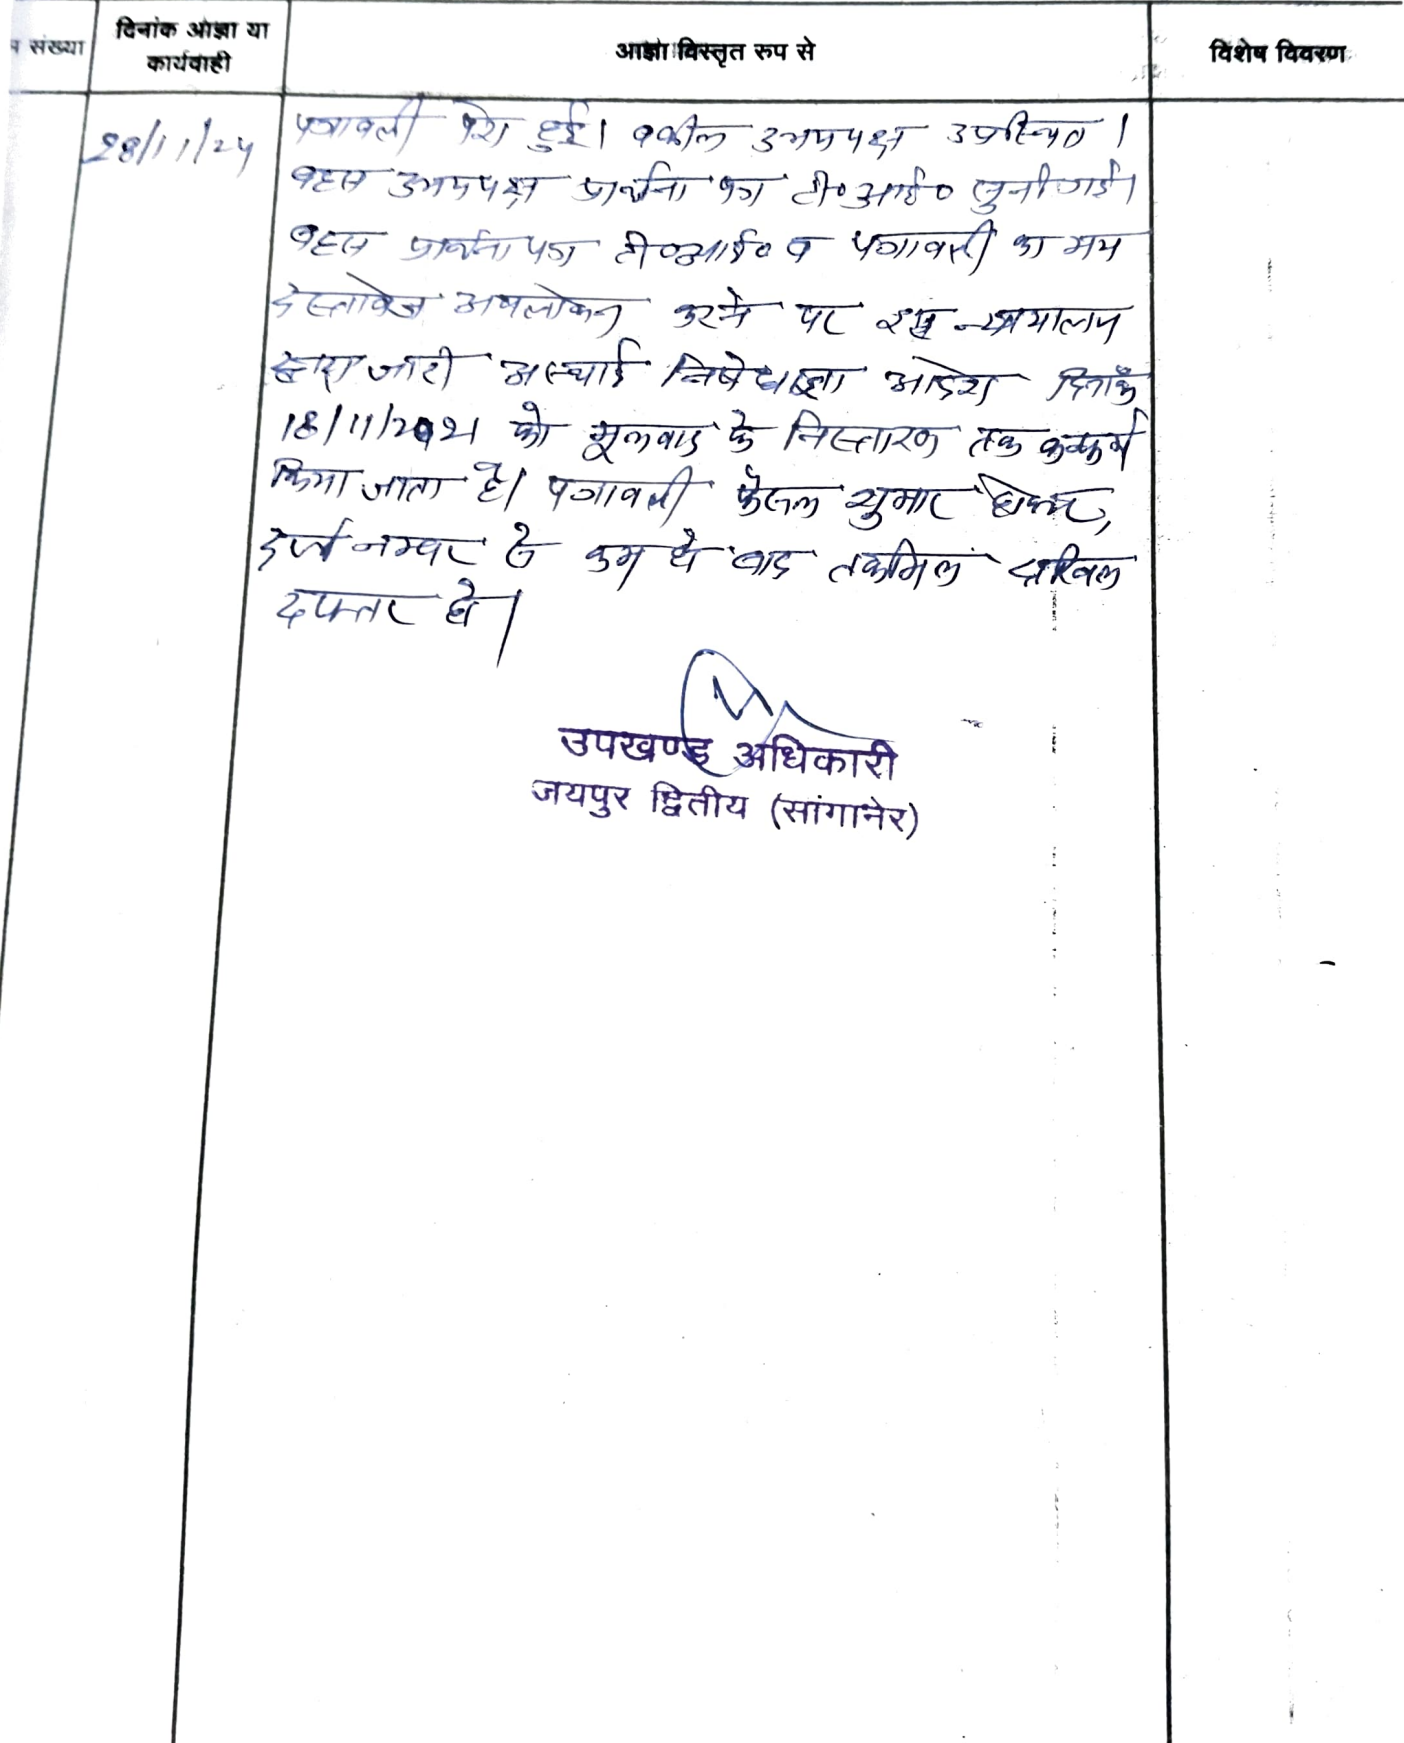 संख्या
दिनांक आज्ञा या
कार्यवाही
आज्ञा विस्तृत रुप से
विशेष विवरण
28/11/24
पत्रावली पेश हुई। वकील उभयपक्ष उपस्थित।
बहस उभयपक्ष प्रार्थना पत्र टी०आई० सुनी गई।
बहस प्रार्थना पत्र टी०आई० व पत्रावली का मय
दस्तावेज अवलोकन करने पर इस न्यायालय
द्वारा जारी अस्थाई निषेधाज्ञा आदेश दिनाँक
18/11/2021 को मूलवाद के निस्तारण तक कन्फर्म
किया जाता है। पत्रावली फैसल शुमार होकर,
दर्ज नम्बर से कम हो बाद तकमिल दाखिल
दफ्तर हो।
उपखण्ड अधिकारी
जयपुर द्वितीय (सांगानेर)